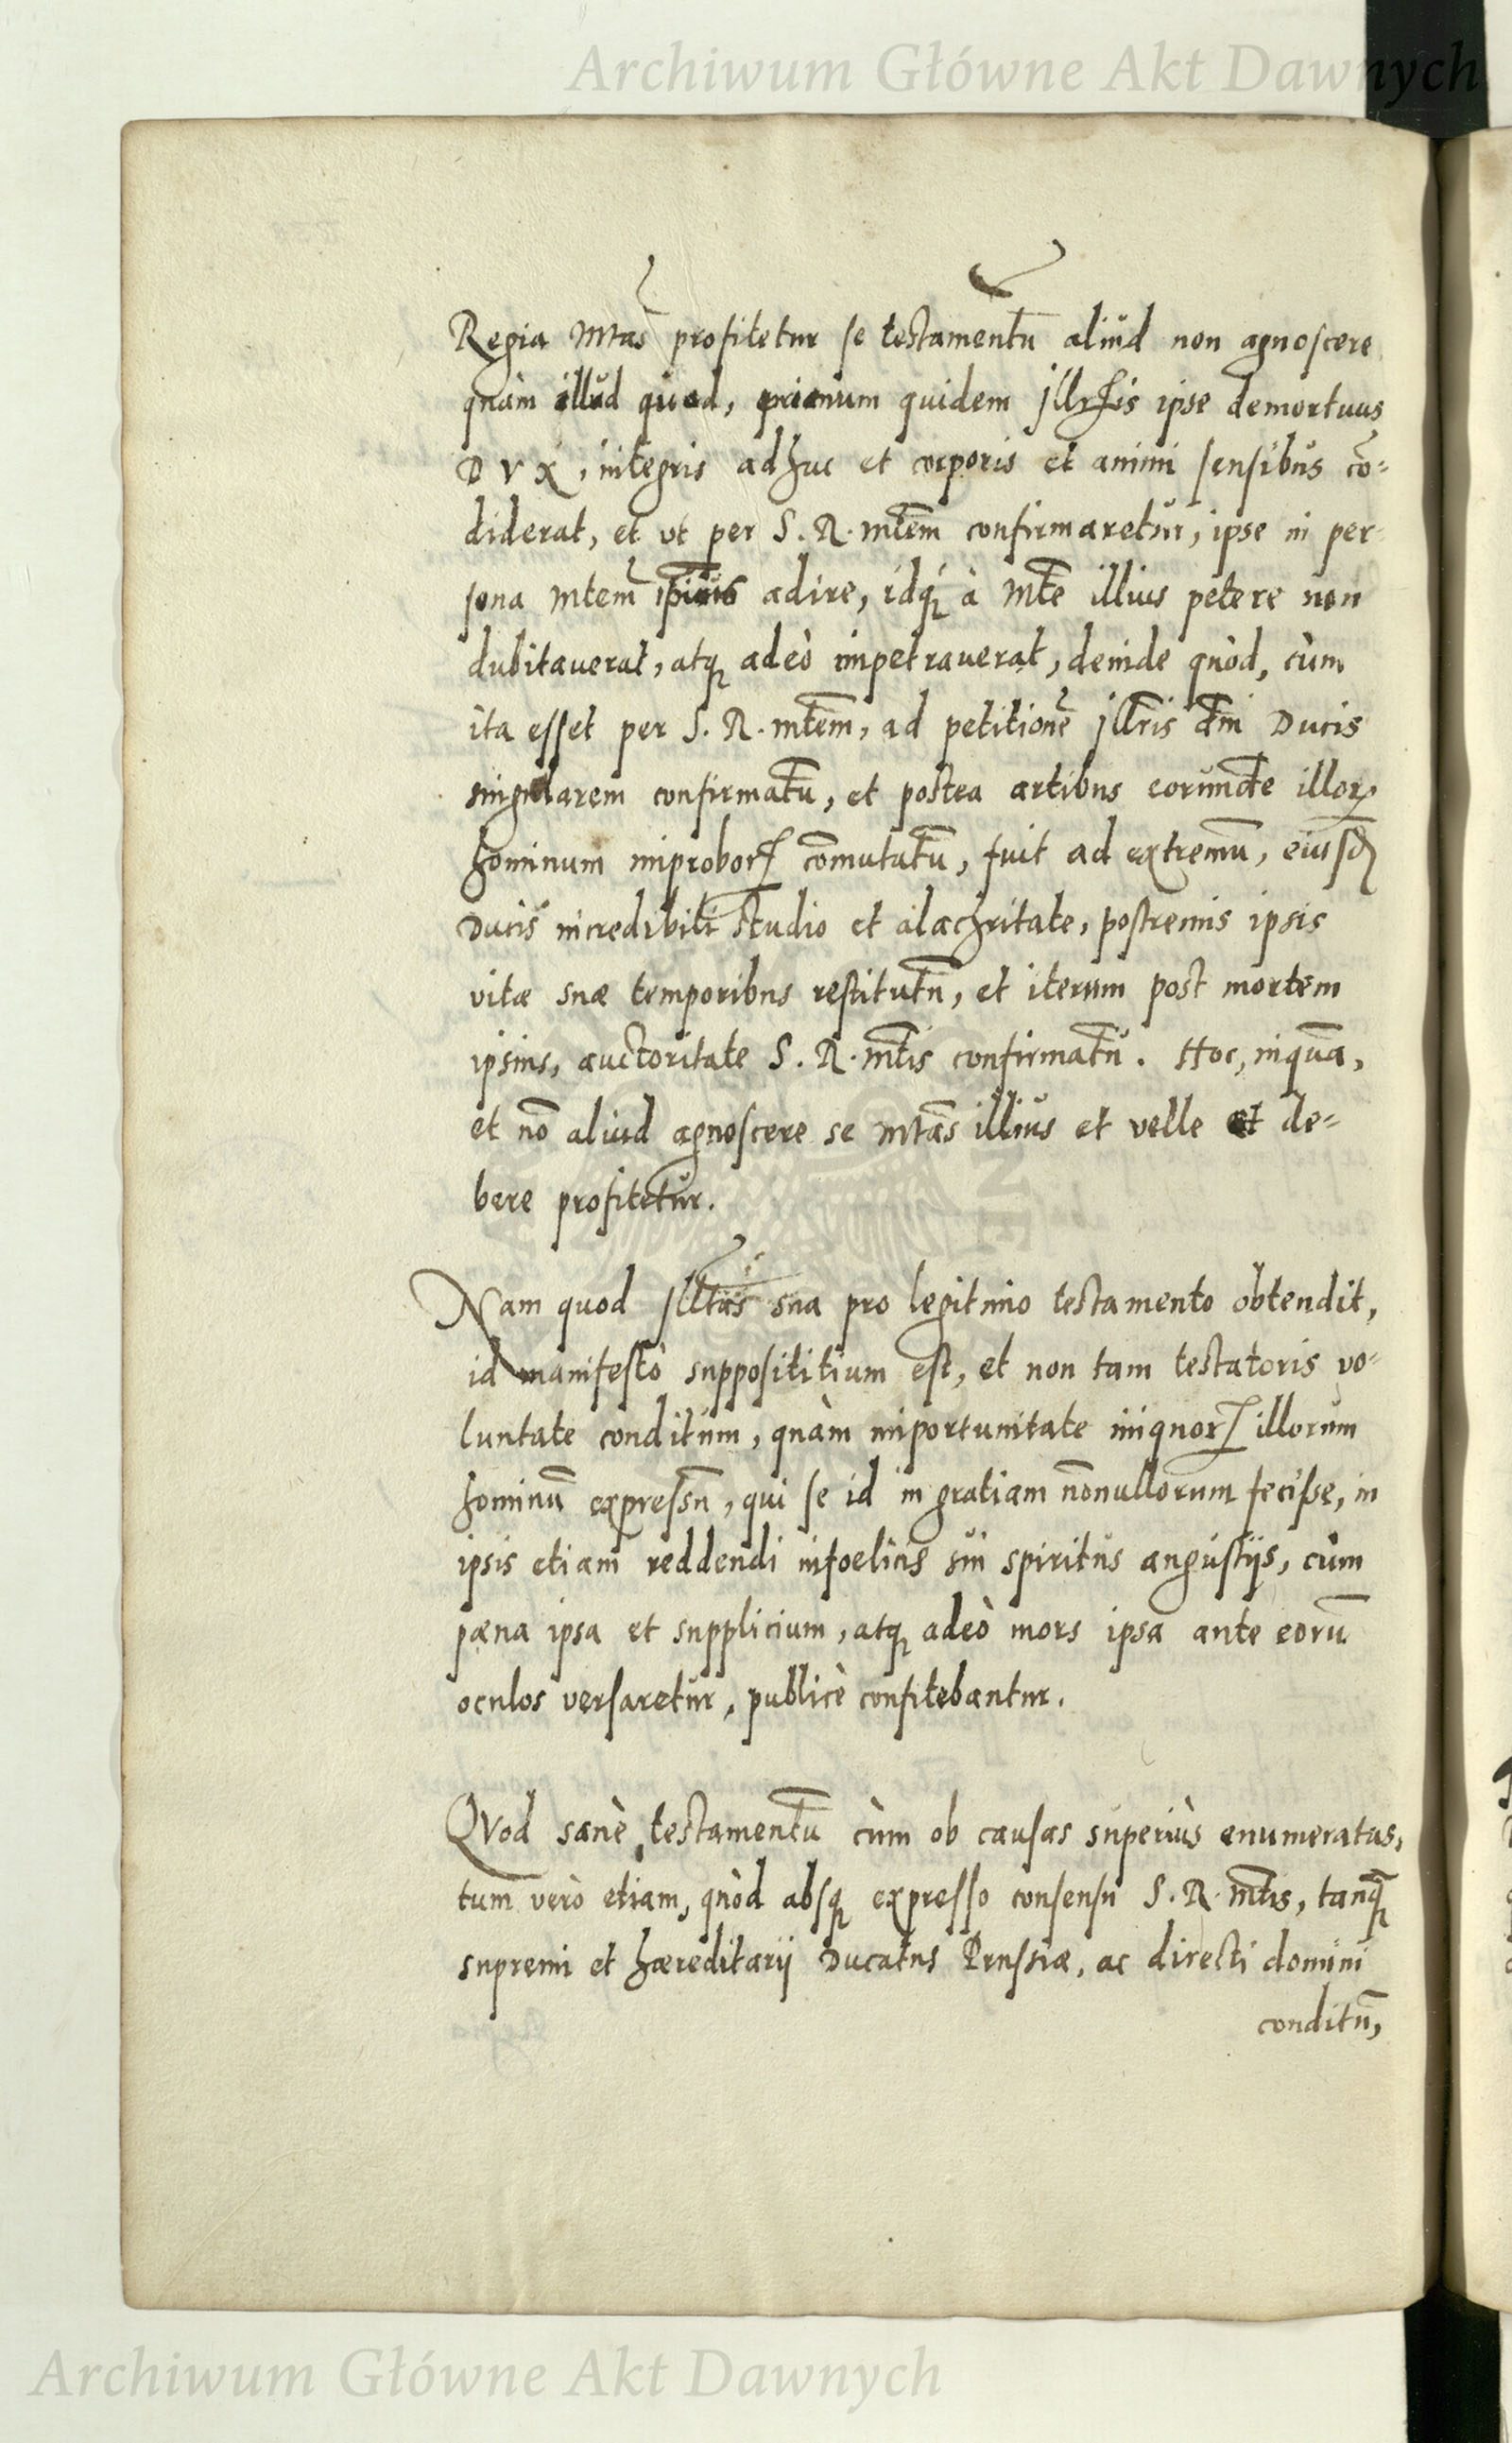 Archiwum Główne Akt Dawnych
Regia Mtas profitetur se testamentū aliud non agnoscere
quàm illud quod, primum quidem Jllris ipse demortuus
DVX, integris adhuc et corporis et animi sensibus cō-
diderat, et vt per S. R. mtem confirmaretur, ipse in per-
sona Mtem ipsius adire, idq́ à Mte illius petere non
dubitauerat, atq adeò impetrauerat, deinde quòd, cùm
ita esset per S. R. mtem, ad petitionē Jllris dni Ducis
singularem confirmatū, et postea artibus eorundē illorꝝ
hominum improborꝝ cōmutatū, fuit ad extremū, eiusdē
Ducis incredibili studio et alachritate, postremis ipsis
vitæ suæ temporibus restitutū, et iterum post mortem
ipsius, auctoritate S. R. mtis confirmatū. Hoc, inquā,
et nō aliud agnoscere se Mtas illius et velle et de-
bere profitetur.
Nam quod Jlltas sua pro legitimo testamento obtendit,
id manifestò supposititium est, et non tam testatoris vo-
luntate conditum, quàm importunitate iniquorꝝ illorum
hominū expressū, qui se id in gratiam nōnullorum fecisse, in
ipsis etiam reddendi infoelicis sui spiritus angustijs, cùm
pæna ipsa et supplicium, atq adeò mors ipsa ante eorū
oculos versaretur, publicè confitebantur.
QVod sanè testamentū cùm ob causas superiùs enumeratas,
tum verò etiam, quòd absq expresso consensu S. R. mtis, tanq̄
supremi et hæreditarij Ducatus Prussiæ, ac directi domini
conditū,
Archiwum Główne Akt Dawnych